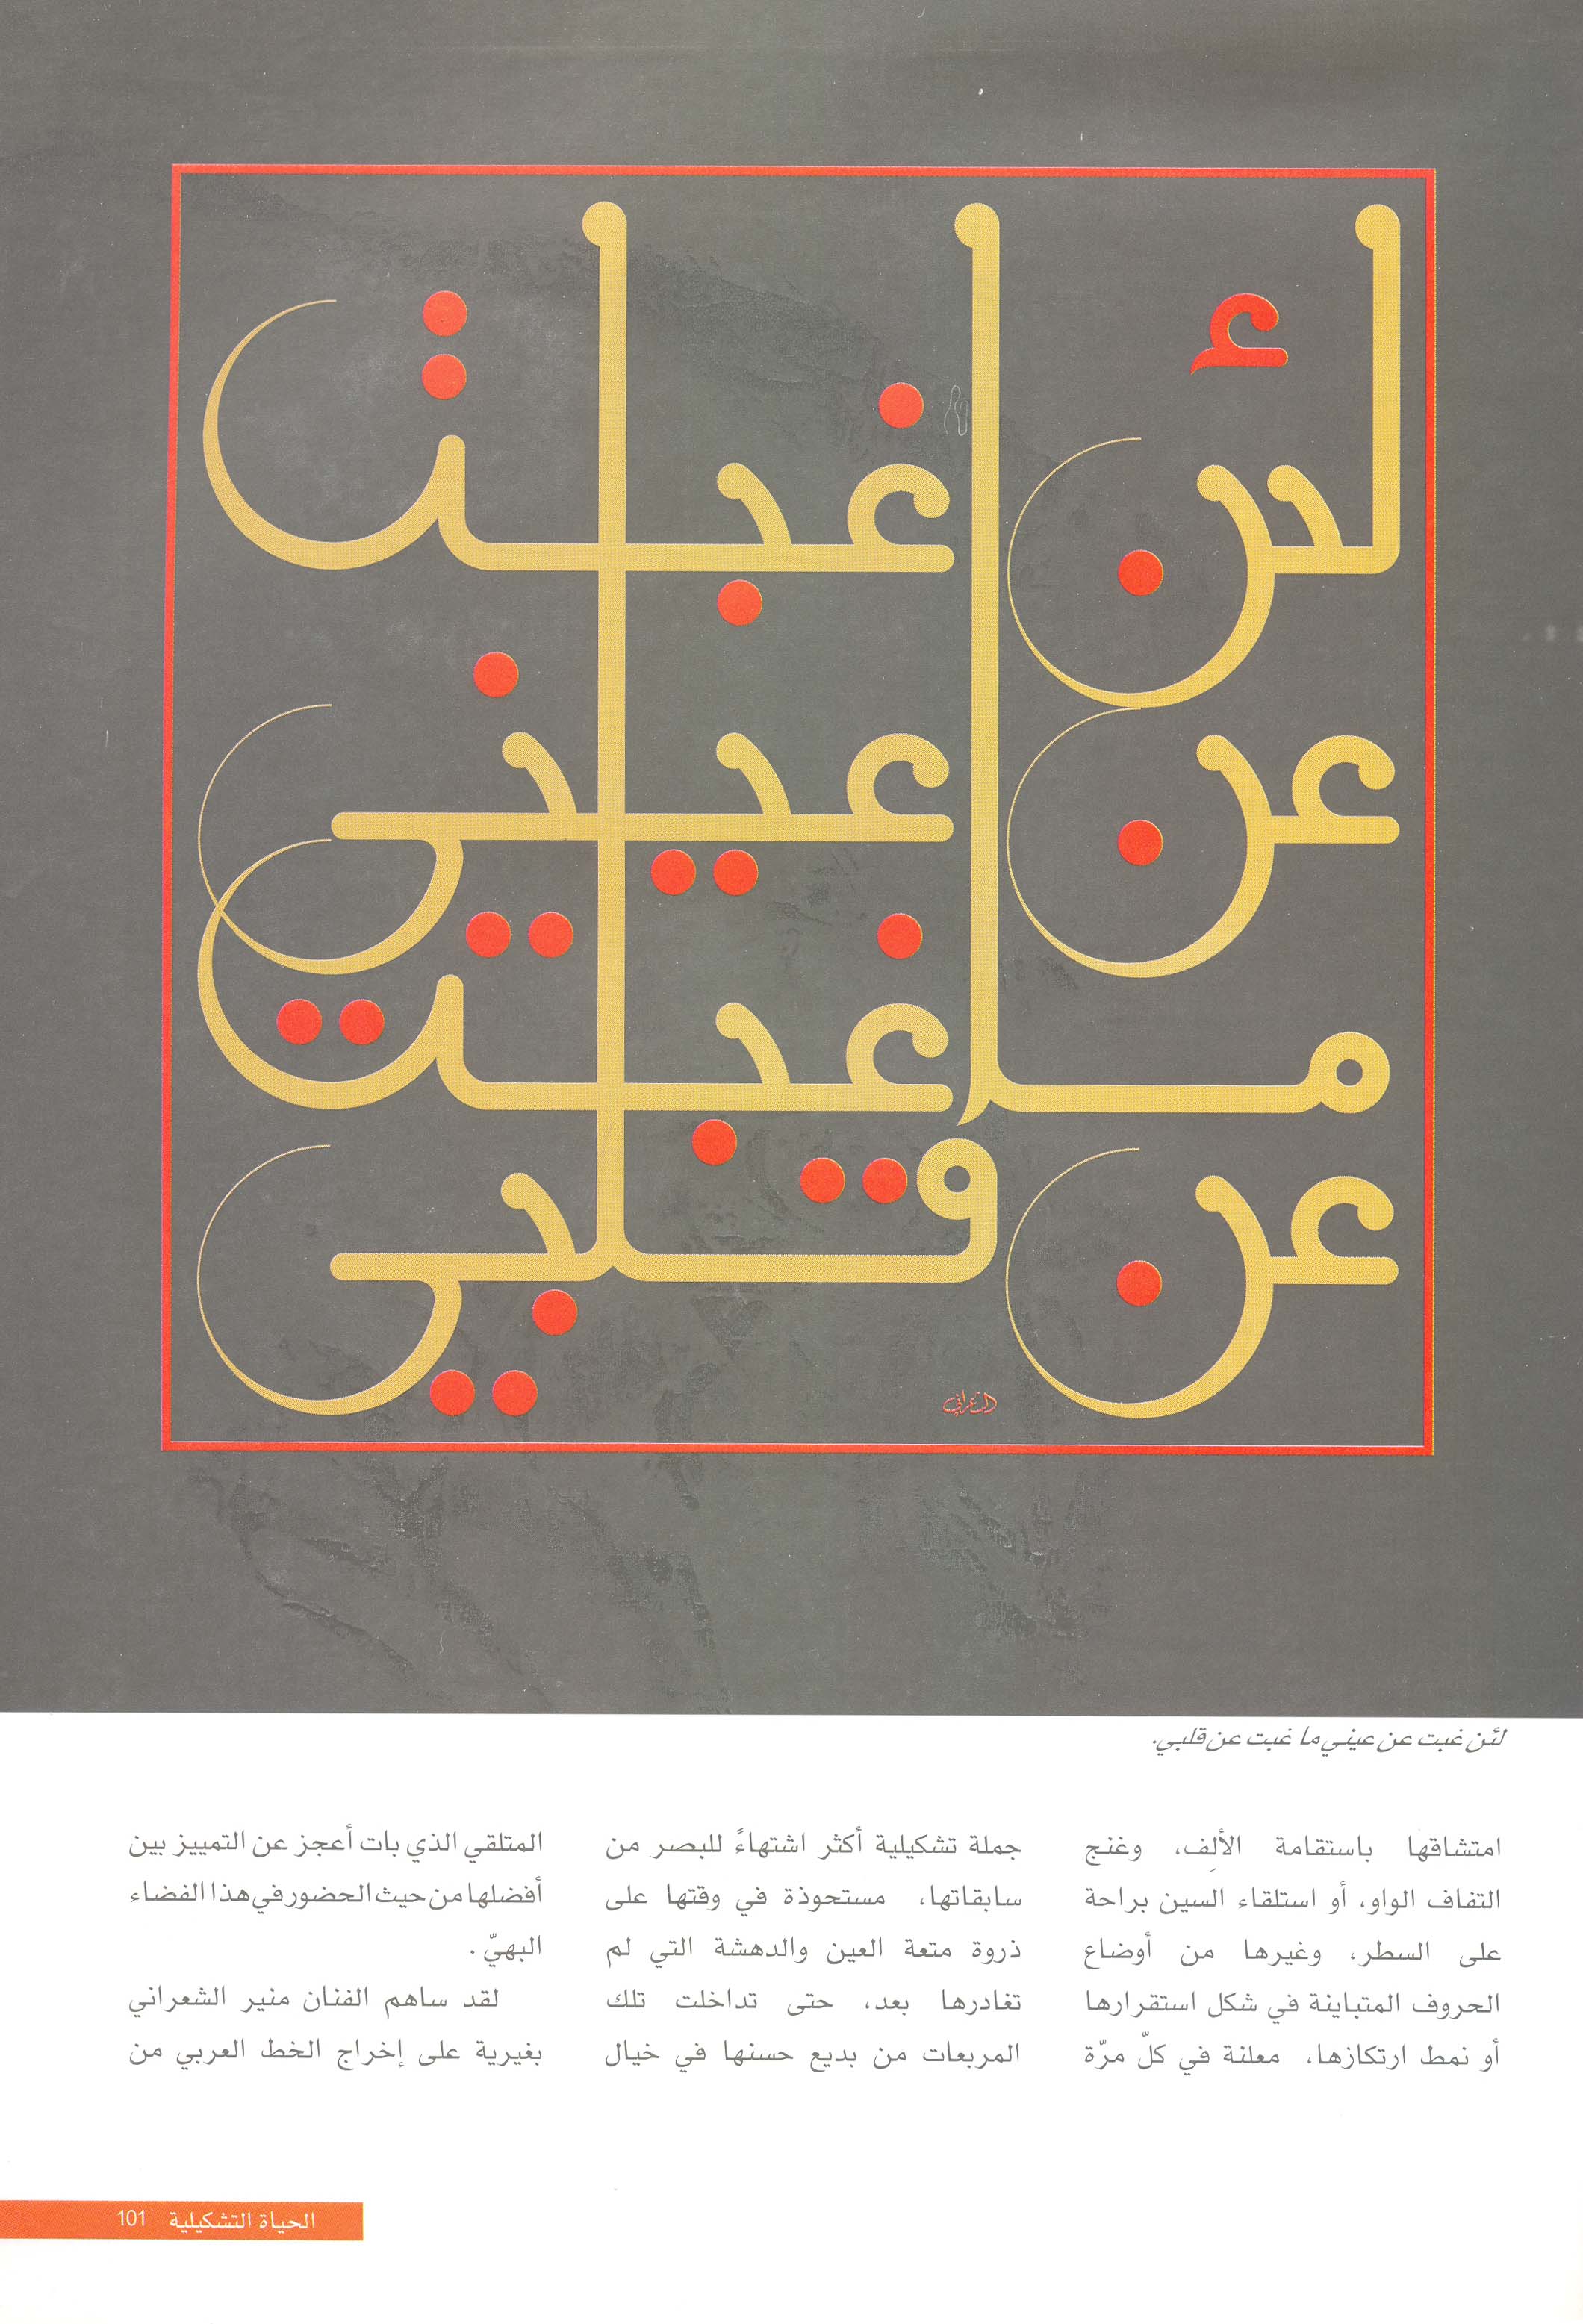 لئن غبت
عن عيني
ما غبت
عن قلبي
الشعراني
لئن غبت عن عيني ما غبت عن قلبي.
امتشاقها باستقامة الألِف، وغنج
التفاف الواو، أو استلقاء السين براحة
على السطر، وغيرها من أوضاع
الحروف المتباينة في شكل استقرارها
أو نمط ارتكازها، معلنة في كلّ مرّة
جملة تشكيلية أكثر اشتهاءً للبصر من
سابقاتها، مستحوذة في وقتها على
ذروة متعة العين والدهشة التي لم
تغادرها بعد، حتى تداخلت تلك
المربعات من بديع حسنها في خيال
المتلقي الذي بات أعجز عن التمييز بين
أفضلها من حيث الحضور في هذا الفضاء
البهيّ.
لقد ساهم الفنان منير الشعراني
بغيرية على إخراج الخط العربي من
الحياة التشكيلية 101